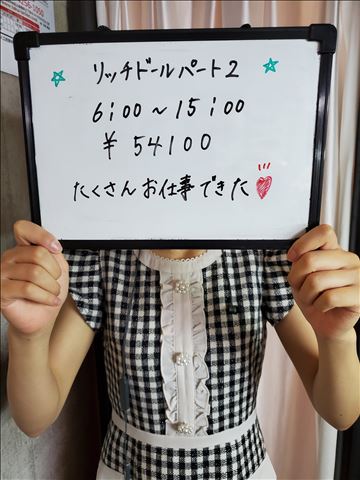 リッチドールパート2
6:00～15:00
¥54100
たくさんお仕事できた